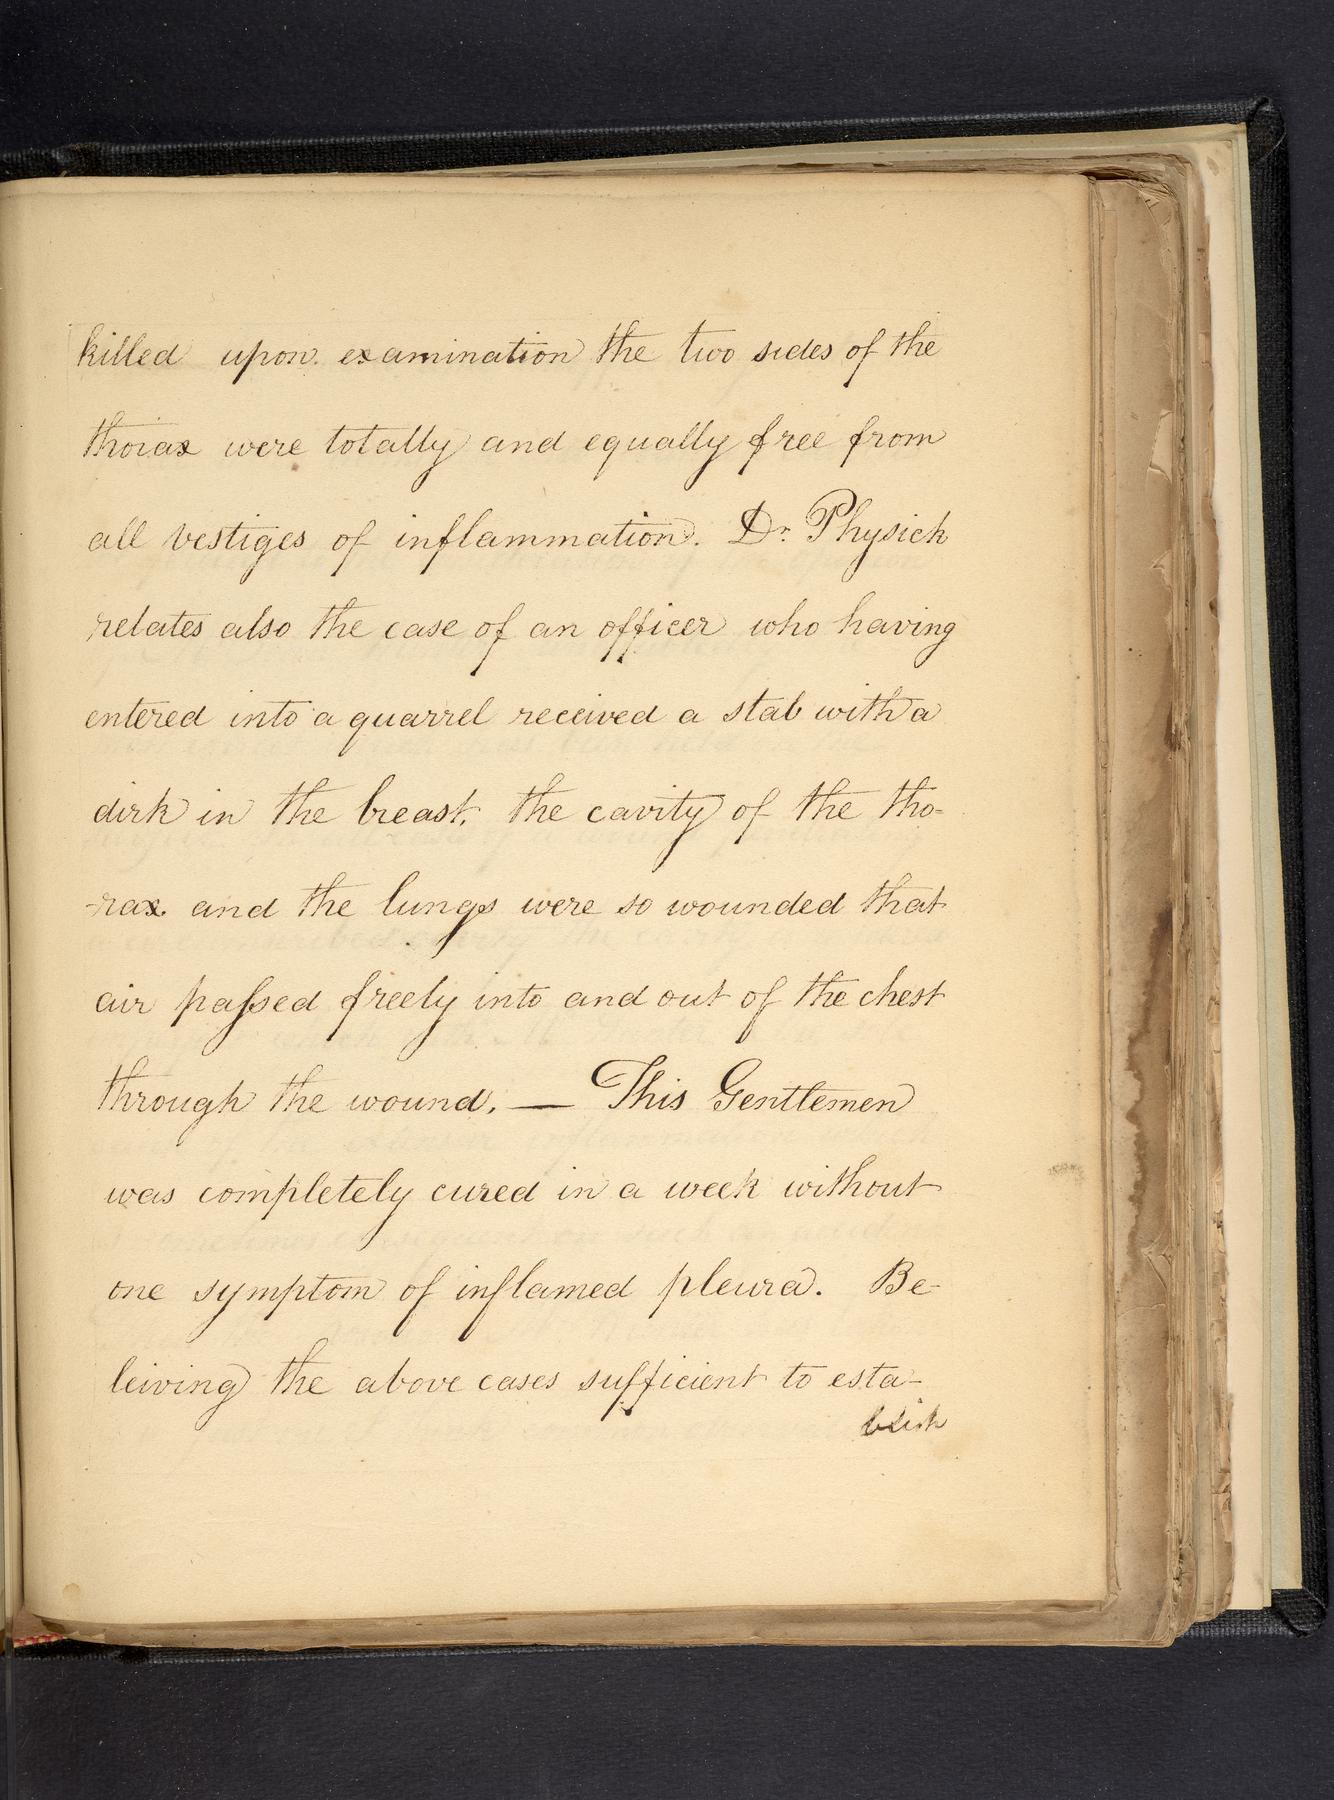 killed upon examination the two sides of the
thorax were totally and equally free from
all vestiges of inflammation. Dr. Physick
relates also the case of an officer who having
entered into a quarrel received a stab with a
dirk in the breast, the cavity of the tho-
-rax and the lungs were so wounded that
air passed freely into and out of the chest
through the wound. — This Gentlemen
was completely cured in a week without
one symptom of inflamed pleura. Be-
leiving the above cases sufficient to esta-
blish